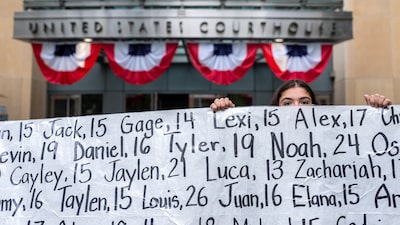 UNITED STATES COURTHOUSE
n, 15 Jack, 15 Gage, 14 Lexi, 15 Alex, 17 Ch
evin, 19 Daniel, 16 Tyler, 19 Noah, 24 Os
Cayley, 15 Jaylen, 21 Luca, 13 Zachariah, 17
my, 16 Taylen, 15 Louis, 26 Juan, 16 Elana, 15 A